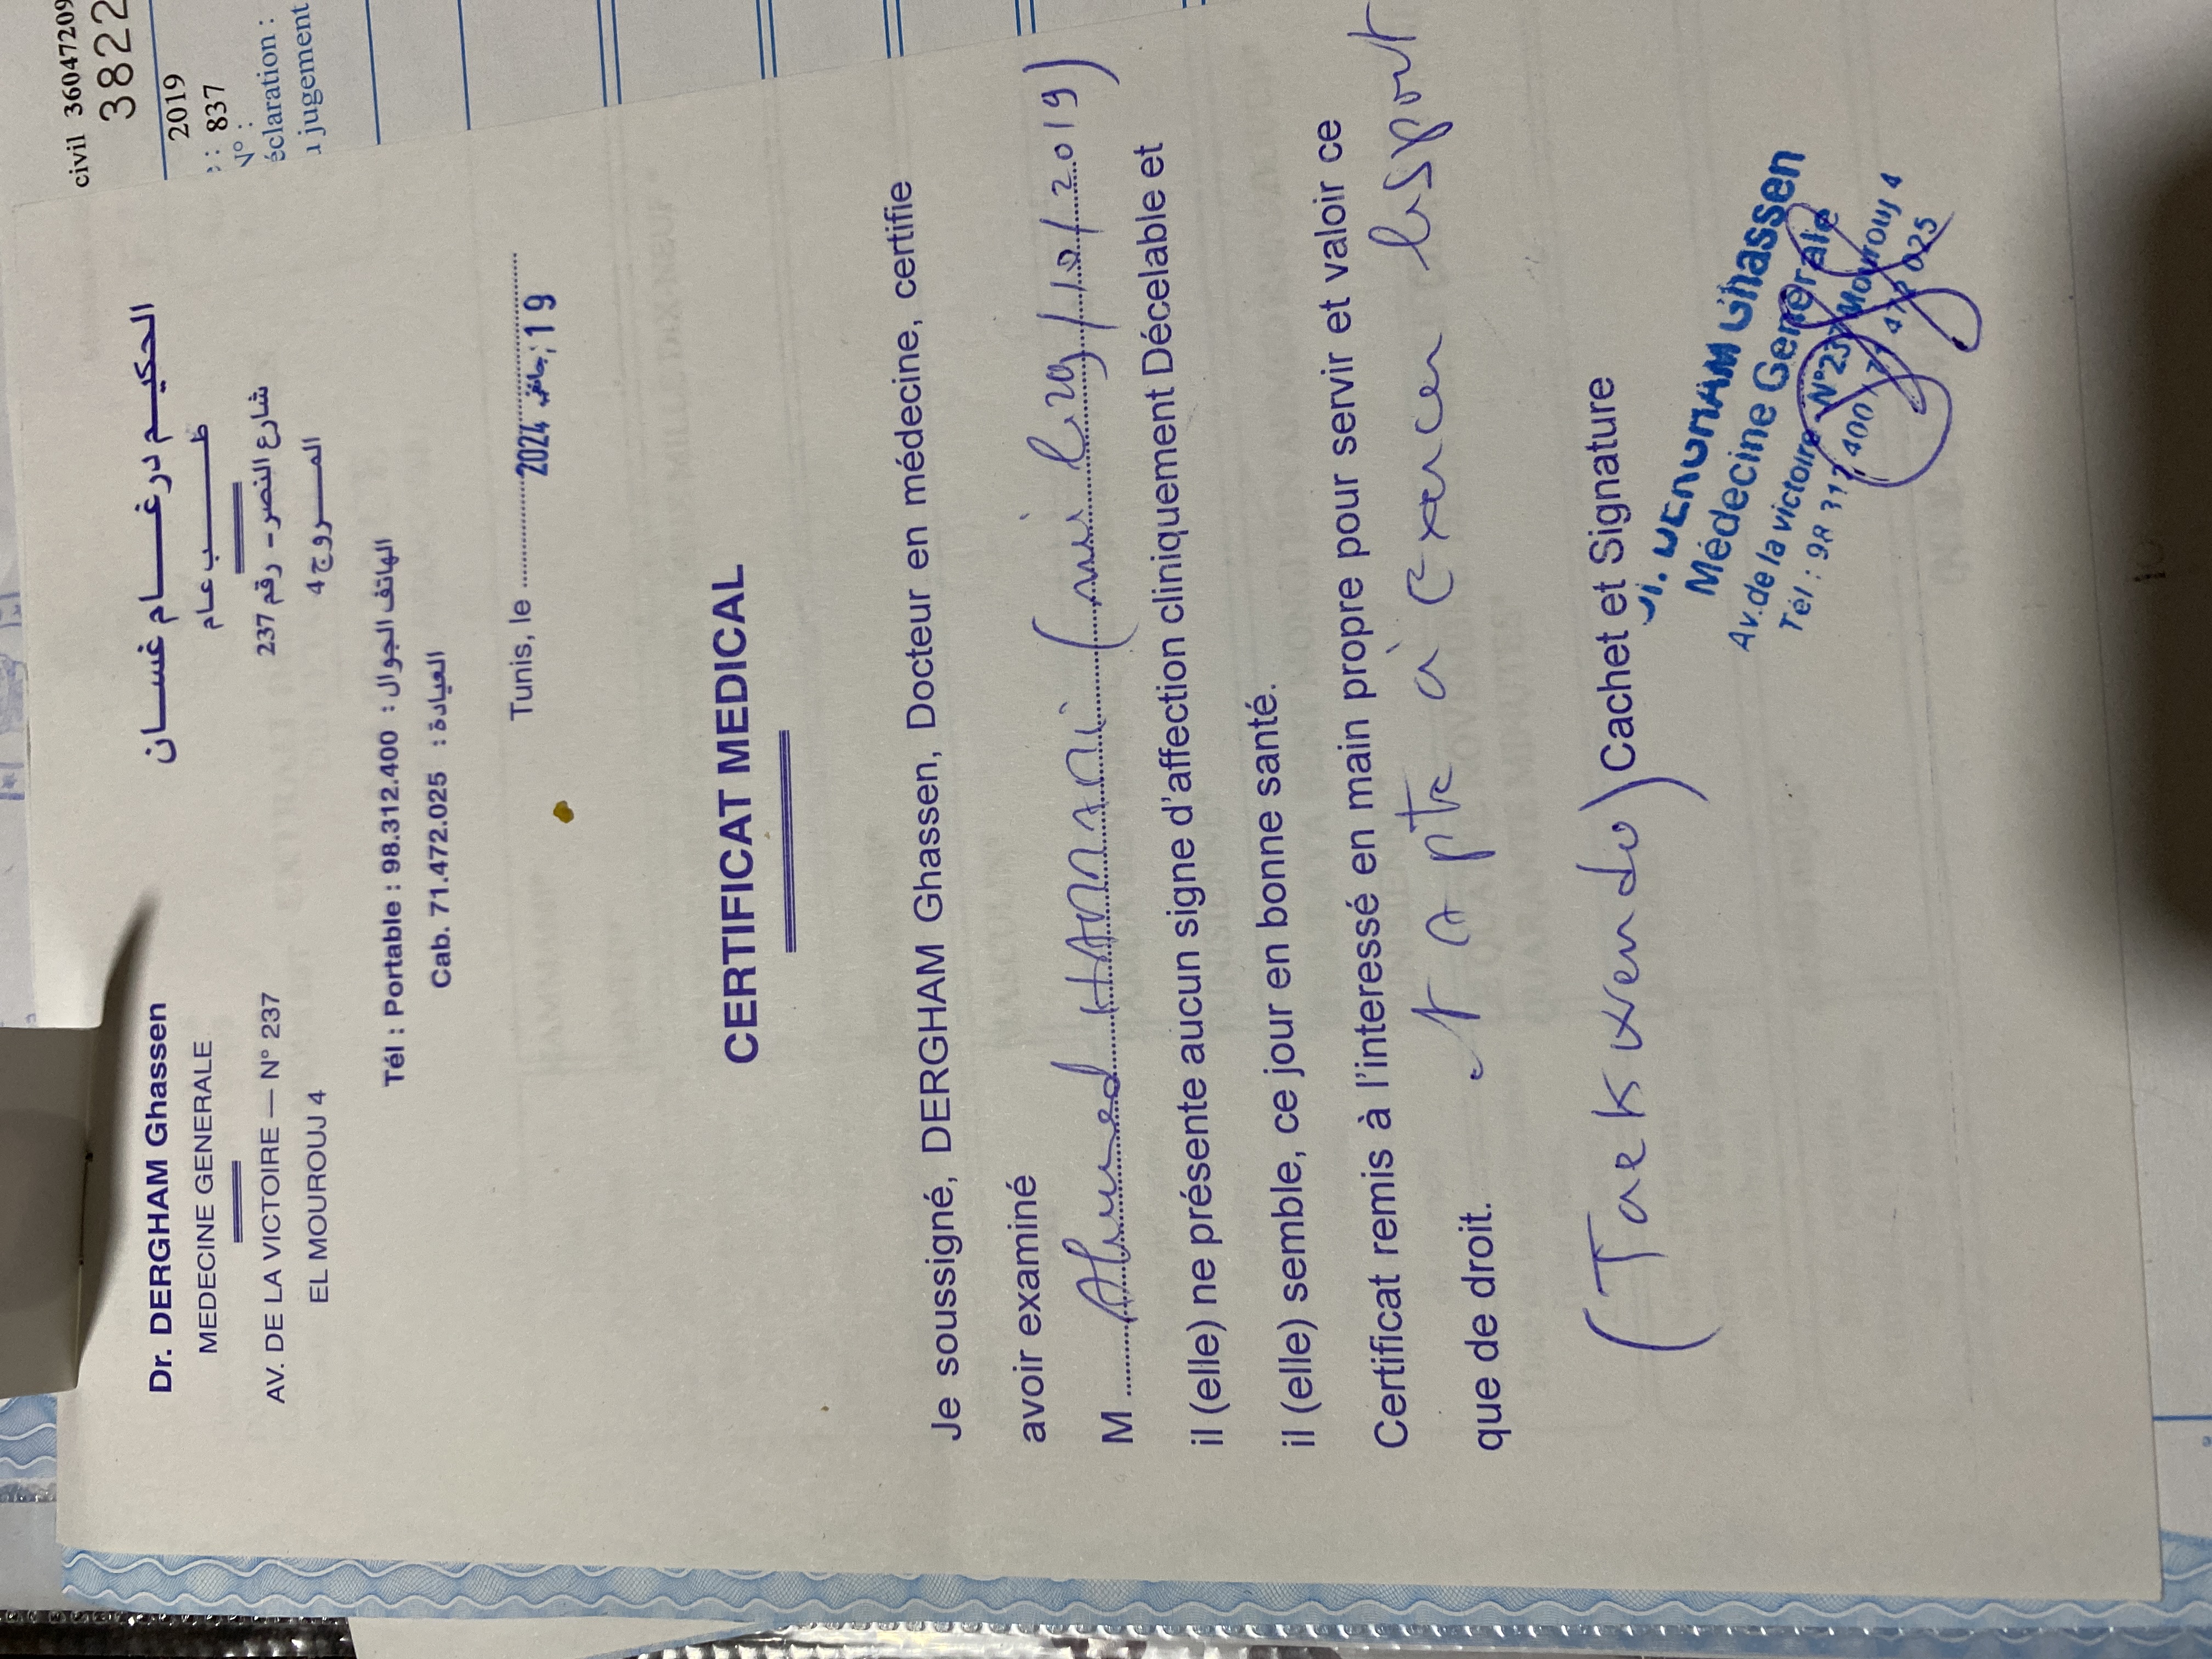 civil 36047209
3822
2019
: 837
N° :
éclaration :
jugement
Dr. DERGHAM Ghassen
MEDECINE GENERALE
AV. DE LA VICTOIRE — N° 237
EL MOUROUJ 4
الحكيم درغام غسان
طب عام
شارع النصر - رقم 237
المروج 4
Tél : Portable : 98.312.400 : الهاتف الجوال
Cab. 71.472.025 : العيادة
Tunis, le 2024 جانفي 19
CERTIFICAT MEDICAL
Je soussigné, DERGHAM Ghassen, Docteur en médecine, certifie
avoir examiné
M Ahmed HAMMAMI (né le 29/10/2019)
il (elle) ne présente aucun signe d'affection cliniquement Décelable et
il (elle) semble, ce jour en bonne santé.
Certificat remis à l'interessé en main propre pour servir et valoir ce
que de droit.
apte à exercer le sport
(Taekwendo)
Cachet et Signature
DERGHAM Ghassen
Médecine Generale
Av. de la victoire N°237 Mourouj 4
Tél : 98 312 400 / 71 472 025